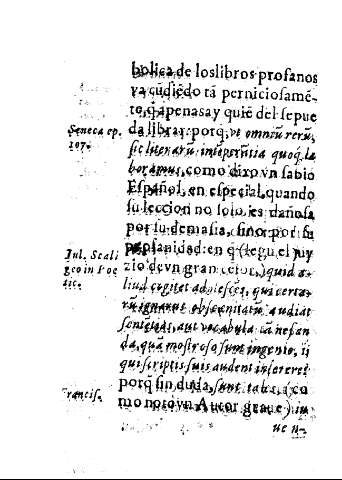 bolica de los libros profanos
va cũdiẽdo tã perniciosamẽ-
te, q̃ apenas ay quiẽ del se pue
Seneca ep. da librar: porq̃, vt omniũ rerũ,
107. sic literarũ intẽperãtia quoq̃ la
boramus, como dixo vn sabio
Español, en especial, quando
su leccion no solo es dañosa
por su demasia, sino por su
Iul. Scali profanidad: en q̃ (segũ el juy
ger in Poe zio de vn gran
tic. liud cogitet adolescẽs, qui certa-
rũ ignarus obscœnitatũ audiat
sentẽtias, aut vocabula tã nefan
da, quã mostrosa sunt ingenio, ij
qui scriptis suis audent inserere?
Francis. porq̃ sin duda, sunt tales, (co
mo notò vn Autor graue) iu
ue n-